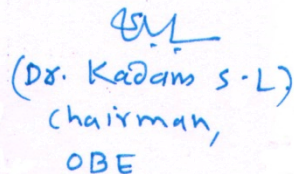 (Dr. Kadam S.L)
Chairman,
OBE